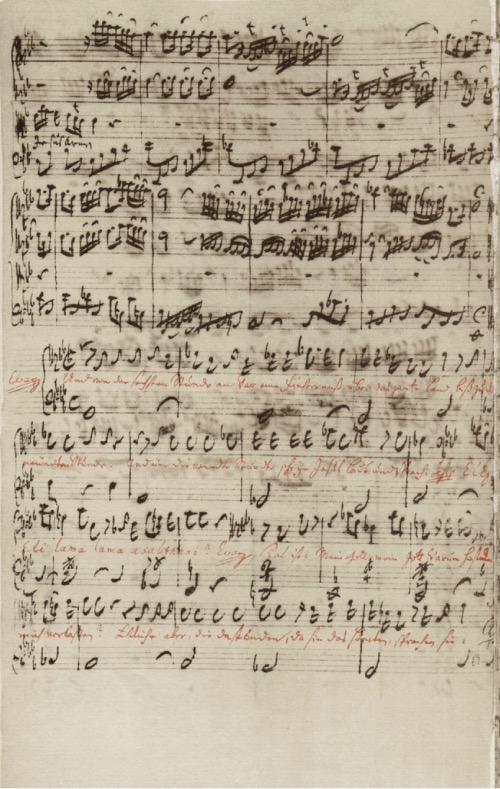 in Jesus Armen
Evang Und von der sechsten Stunde an war eine Finsterniß über das gantze Land biß zu der
neundten Stunde. Und um die neundte Stunde schrie Jesus laut und sprach. Eli, Eli
Eli lama lama asabthani? Evang Das ist: Mein Gott, mein Gott warum hast du
mich verlaßen? Etliche aber, die da stunden, da sie das höreten, sprachen sie.